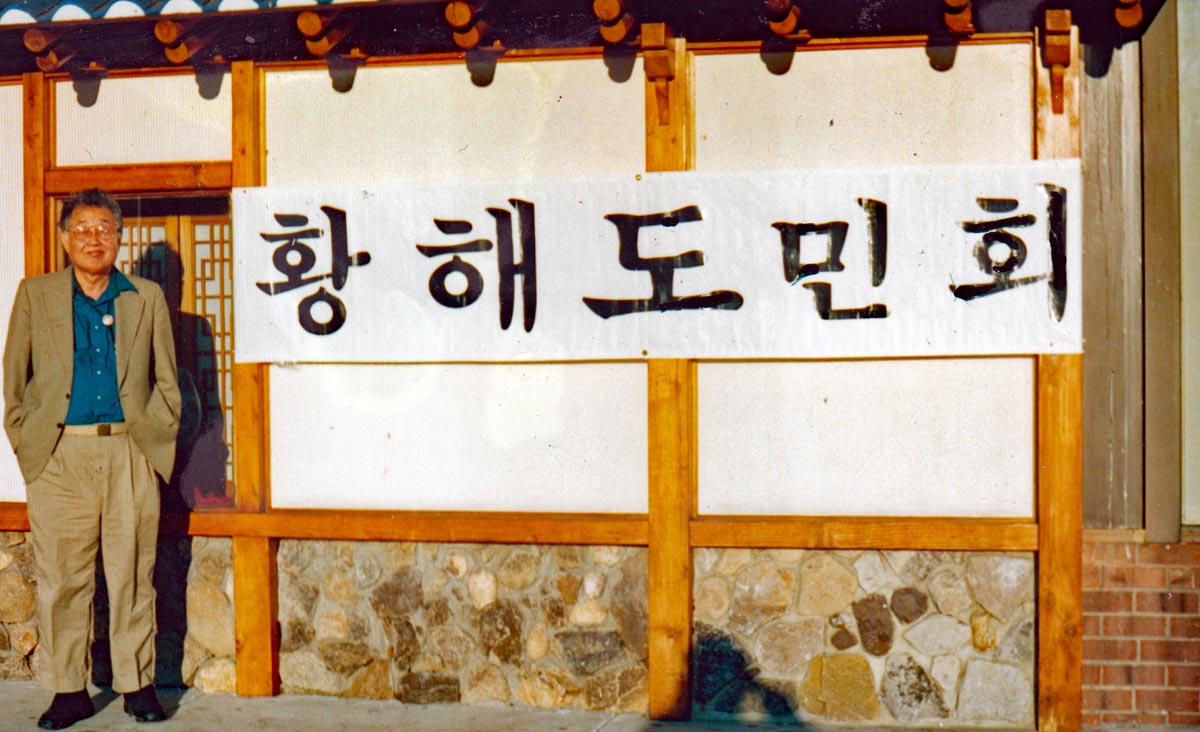 황해도민회